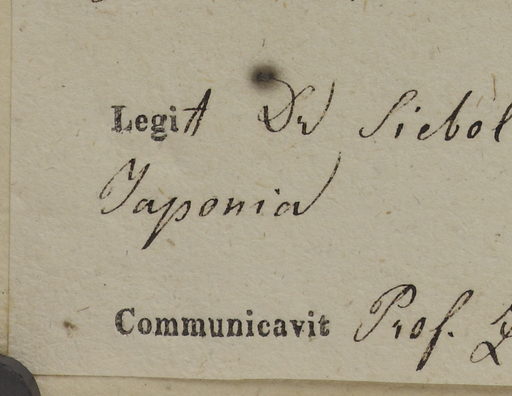 Legit Dr Siebol
Japonia
Communicavit Prof. Z